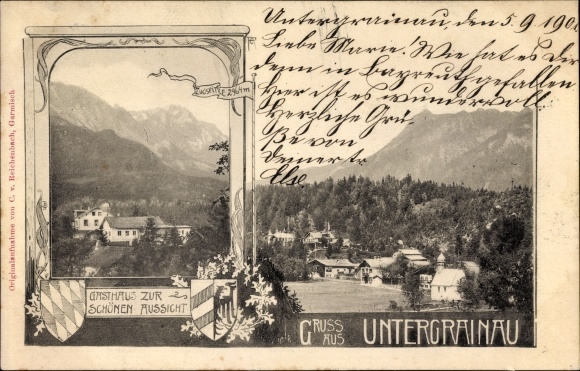 Untergrainau, den 5. 9. 190
Liebe Marie! Wie hat es Dir
denn in Bayreuth gefallen
Hier ist es wundervoll
Herzliche Grü-
ße von
Deiner tr.
Else
ZUGSPITZE 2964 m
Originalaufnahme von C. v. Reichenbach, Garmisch
GASTHAUS ZUR
SCHÖNEN AUSSICHT
GRUSS
AUS UNTERGRAINAU